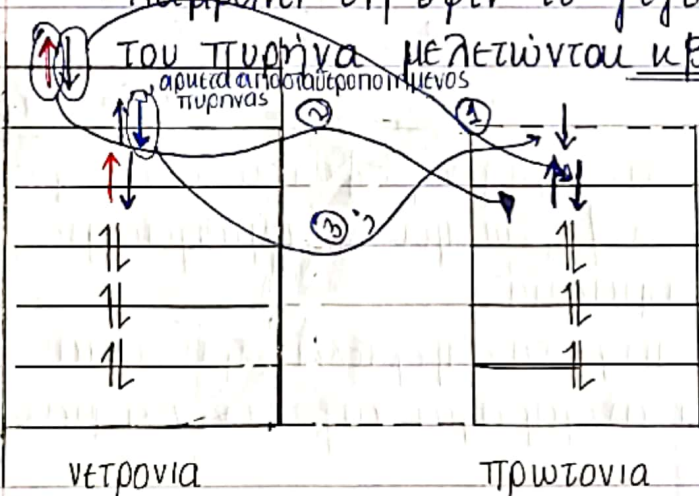 του πυρήνα μελετώνται κβ
αρκετά αποσταθεροποιημένος
πυρήνας
2
1
3 ;
νετρονια πρωτονια